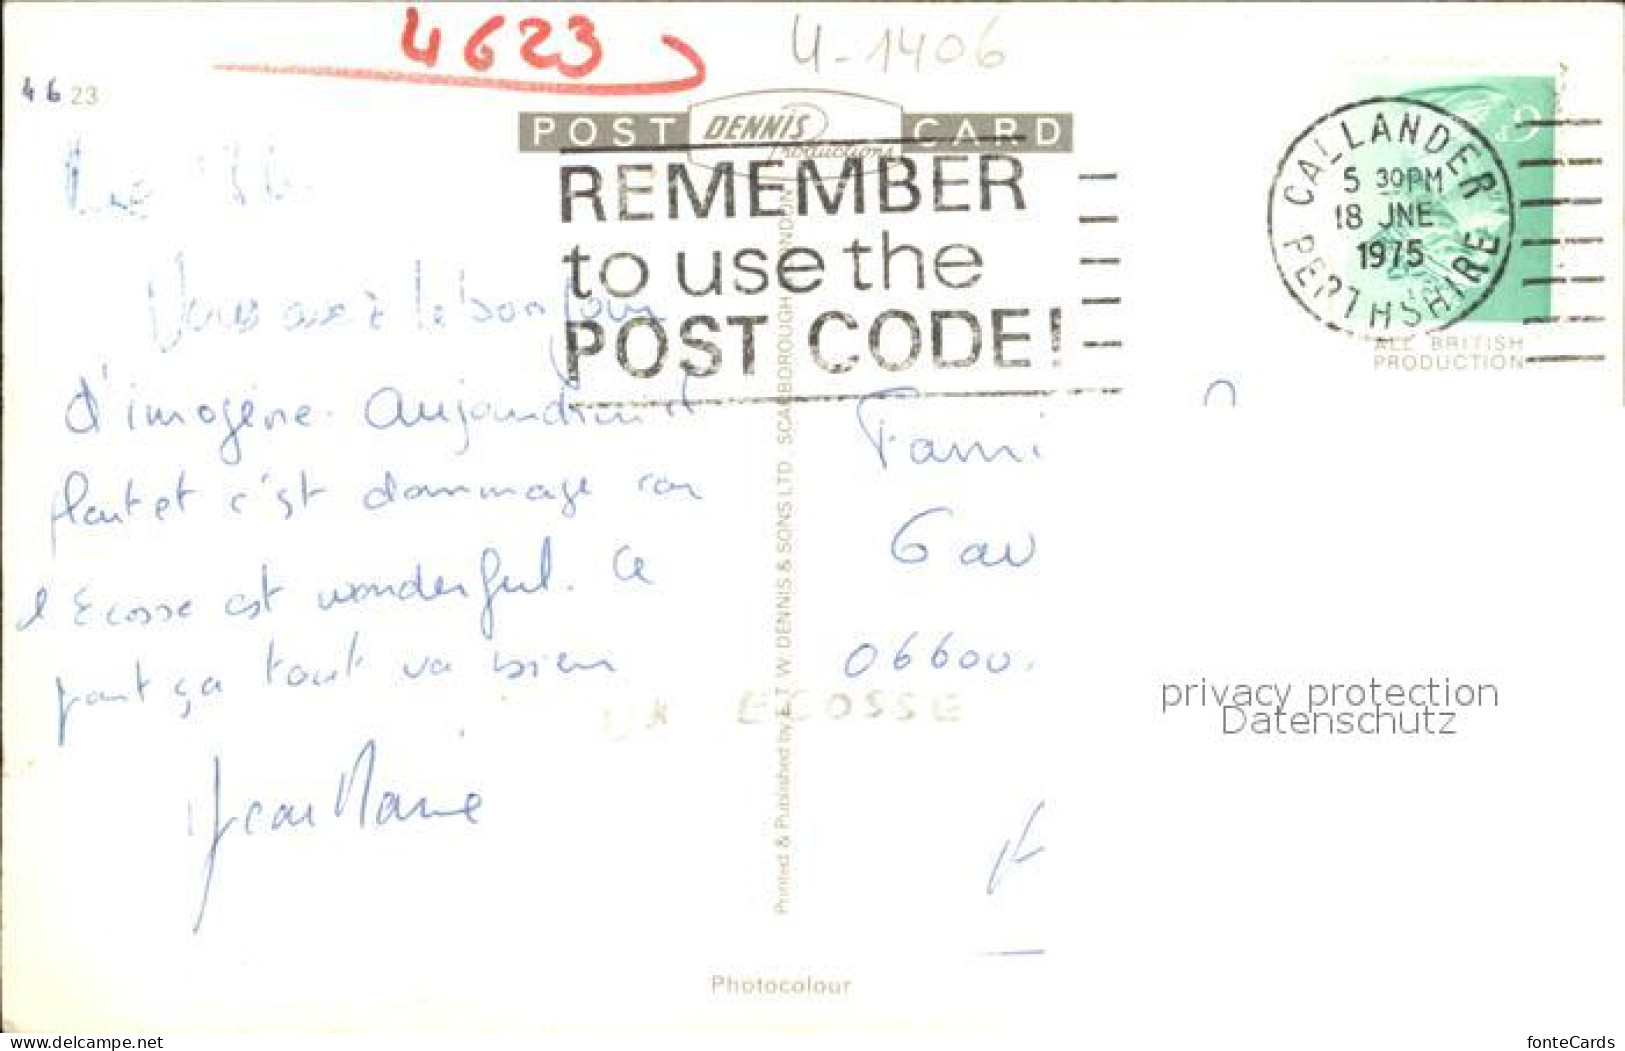 4623
U-1406
4623
POST DENNIS Productions CARD
REMEMBER
to use the
POST CODE!
CALLANDER
5 30PM
18 JNE
1975
PERTHSHIRE
ALL BRITISH
PRODUCTION
Le
Vous avez le bonjour
d'imogène. Aujourd'hui
pleut et c'est dommage car
l'Ecosse est wonderful. A
part ça tout va bien
Jean Marie
Fami
Gau
06600.
UK ECOSSE
Printed & Published by E.T.W. DENNIS & SONS LTD., SCARBOROUGH LONDON
Photocolour
privacy protection
Datenschutz
www.delcampe.net
fonteCards